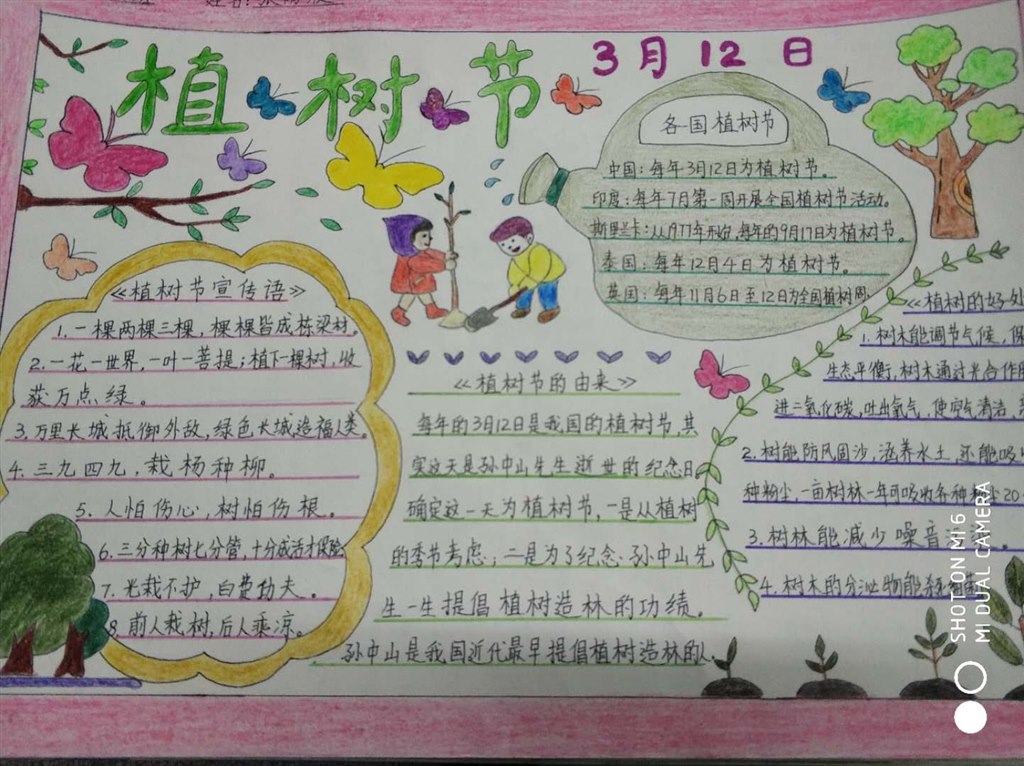 植树节
3月12日
各国植树节
中国：每年3月12日为植树节。
印度：每年7月第一周开展全国植树节活动。
斯里兰卡：从1977年开始，每年的9月17日为植树节。
泰国：每年12月4日为植树节。
英国：每年11月6日至12日为全国植树周
《植树节宣传语》
1. 一棵两棵三棵，棵棵皆成栋梁材。
2. 一花一世界，一叶一菩提；植下一棵树，收
获万点绿。
3. 万里长城抵御外敌，绿色长城造福人类。
4. 三九四九，栽杨种柳。
5. 人怕伤心，树怕伤根。
6. 三分种树七分管，十分成活才保险
7. 光栽不护，白费功夫。
8. 前人栽树，后人乘凉。
《植树节的由来》
每年的3月12日是我国的植树节，其
实这天是孙中山先生逝世的纪念日。
确定这一天为植树节，一是从植树
的季节考虑；二是为了纪念孙中山先
生一生提倡植树造林的功绩。
孙中山是我国近代最早提倡植树造林的人
《植树的好处
1. 树木能调节气候，保
生态平衡，树木通过光合作用
进二氧化碳，吐出氧气，使空气清洁，
2. 树能防风固沙，涵养水土，还能吸收
种粉尘，一亩树林一年可吸收各种粉尘20
3. 树林能减少噪音
4. 树木的分泌物能杀
SHOT ON MI 6
MI DUAL CAMERA